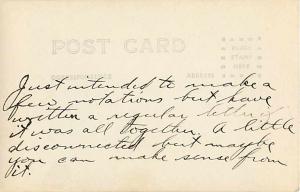 POST CARD
PLACE
STAMP
HERE
CORRESPONDENCE
ADDRESS
Just intended to make a
few notations but have
written a regular letter if
it was all together. A little
disconnected but maybe
you can make sense from
it.